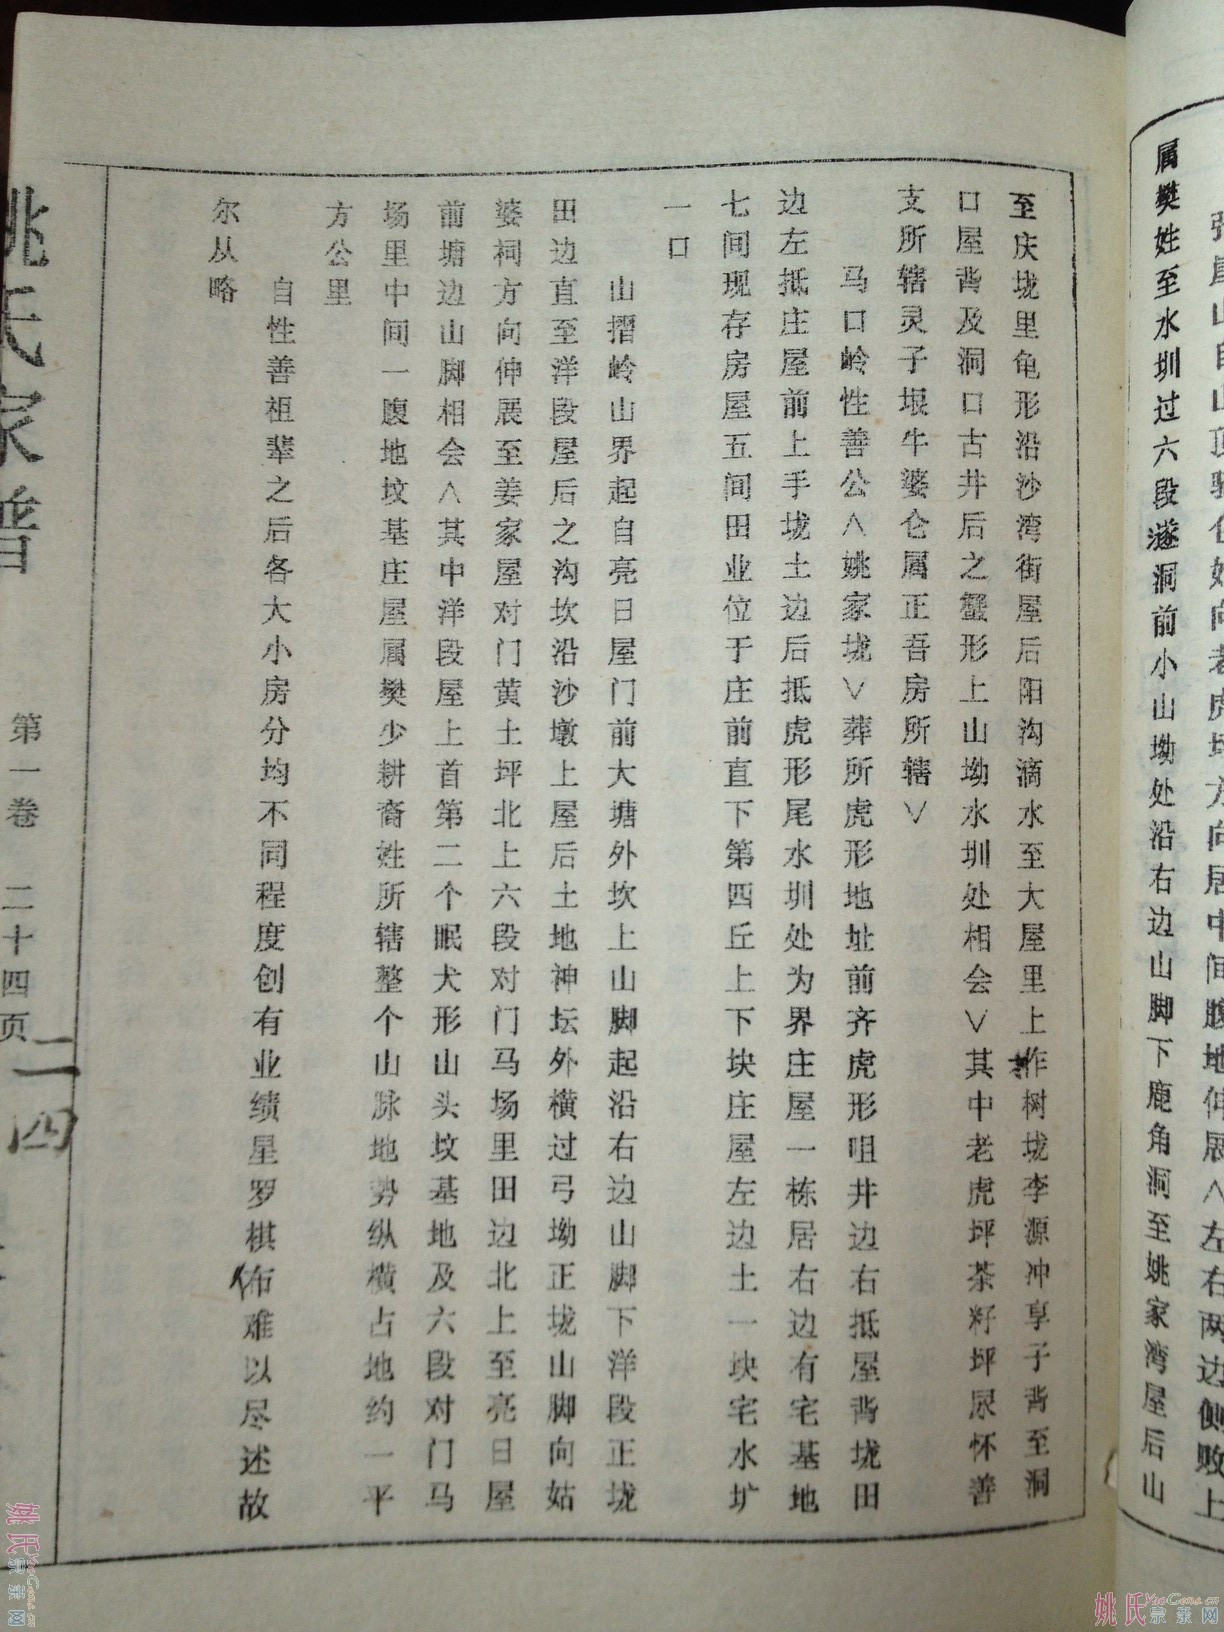 属樊姓至水圳过六段邃洞前小山坳处沿右边山脚下鹿角洞至姚家湾屋后山
至庆垅里龟形沿沙湾街屋后阳沟滴水至大屋里上柞树垅李源冲享子背至洞
口屋背及洞口古井后之蟹形上山坳水圳处相会∨其中老虎坪茶籽坪尿怀善
支所辖灵子垠牛婆仑属正吾房所辖∨
马口岭性善公∧姚家垅∨葬所虎形地址前齐虎形咀井边右抵屋背垅田
边左抵庄屋前上手垅土边后抵虎形尾水圳处为界庄屋一栋居右边有宅基地
七间现存房屋五间田业位于庄前直下第四丘上下块庄屋左边土一块宅水圹
一口
山摺岭山界起自亮日屋门前大塘外坎上山脚起沿右边山脚下洋段正垅
田边直至洋段屋后之沟坎沿沙墩上屋后土地神坛外横过弓坳正垅山脚向姑
婆祠方向伸展至姜家屋对门黄土坪北上六段对门马场里田边北上至亮日屋
前塘边山脚相会∧其中洋段屋上首第二个眠犬形山头坟基地及六段对门马
场里中间一腹地坟基庄屋属樊少耕裔姓所辖整个山脉地势纵横占地约一平
方公里
自性善祖辈之后各大小房分均不同程度创有业绩星罗棋布难以尽述故
尔从略
姚氏家谱
第一卷 二十四页
二四
姚氏
YaoGens.cn
宗亲网
姚氏
YaoGens.cn
宗亲网